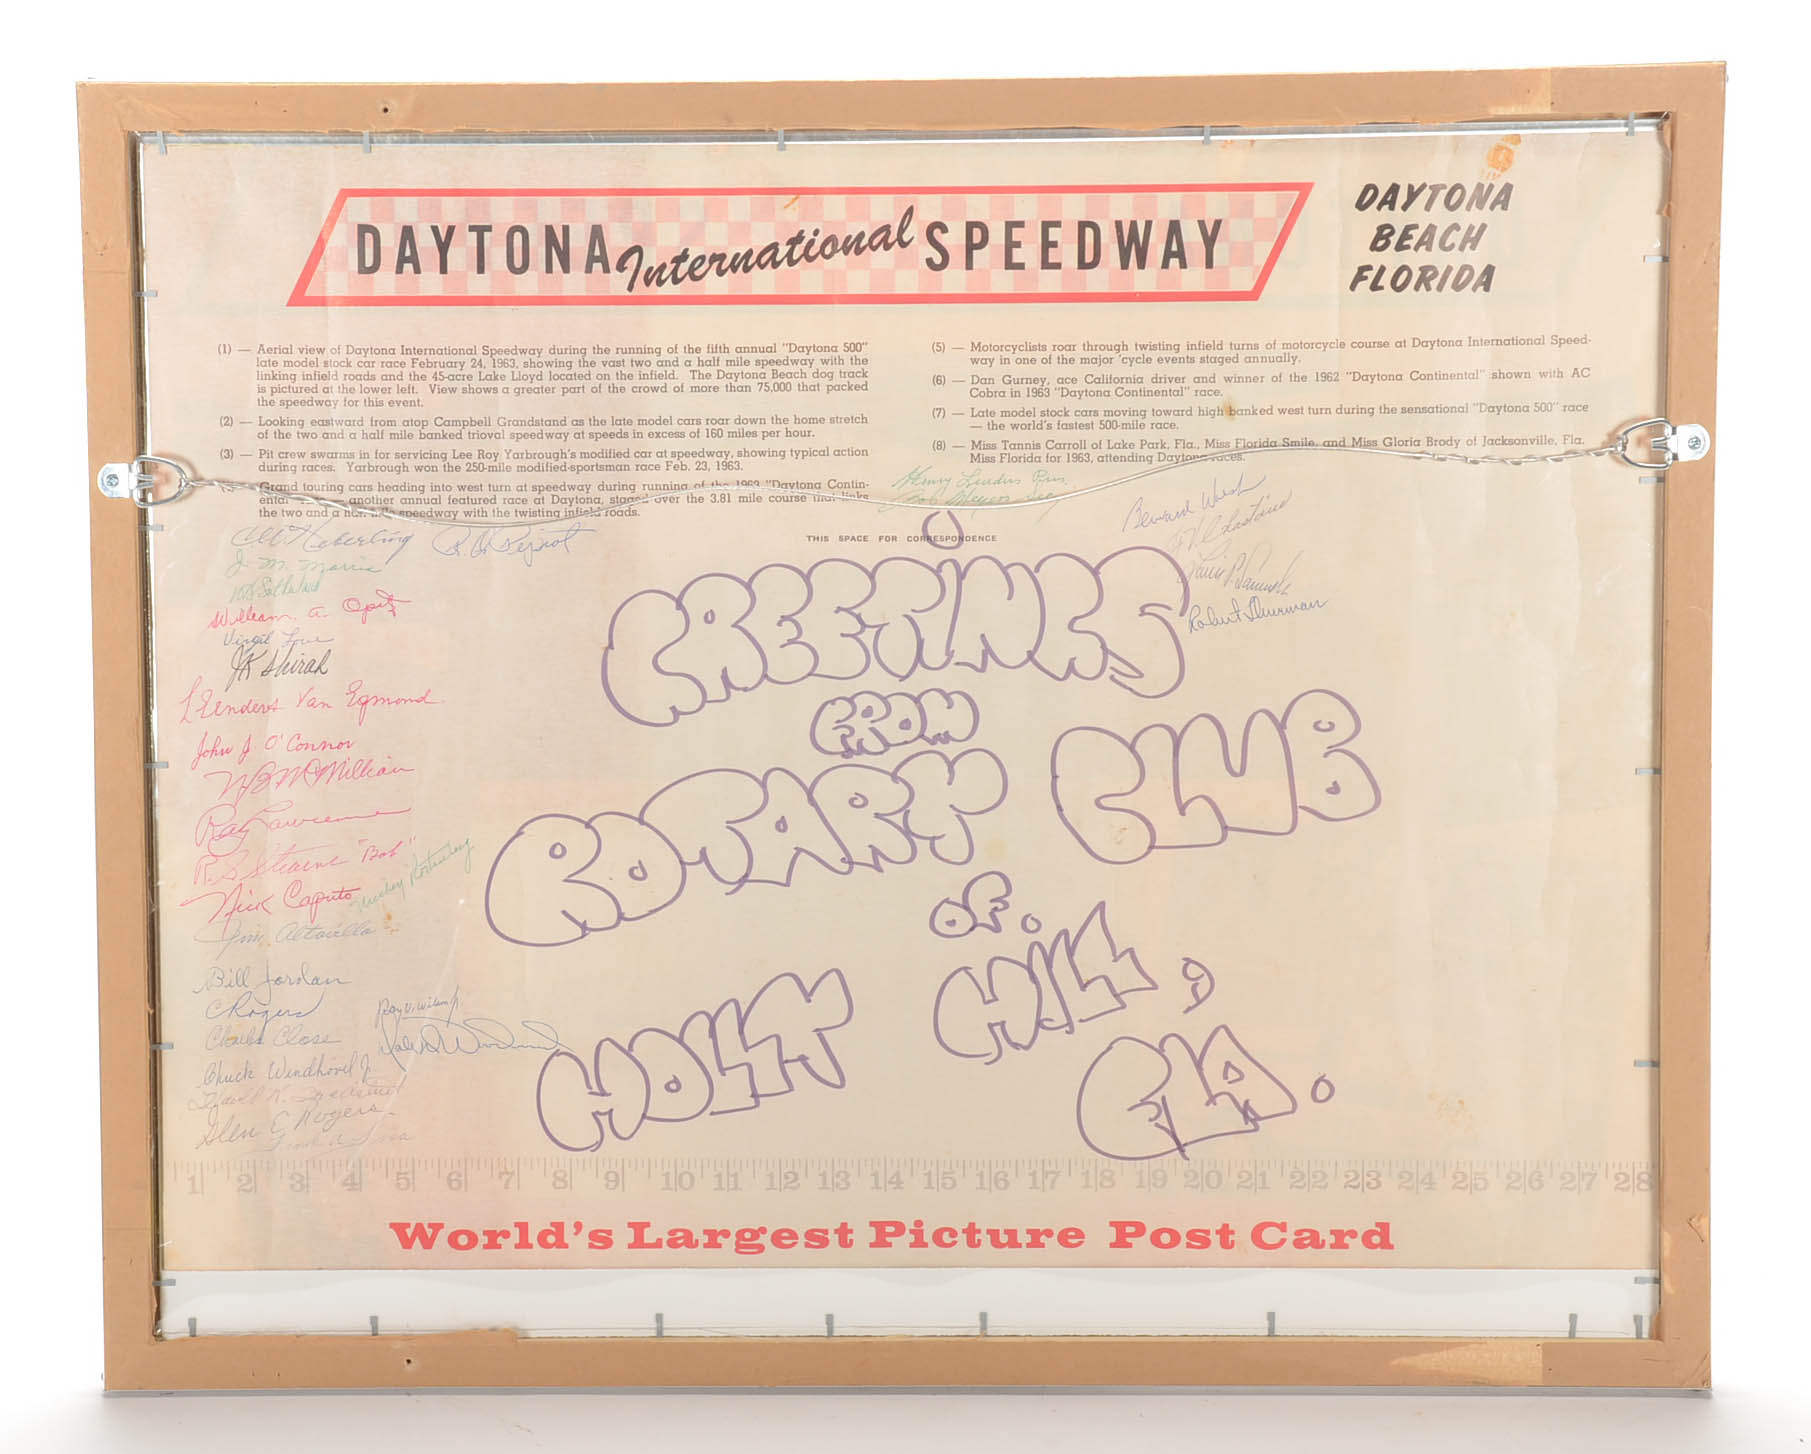 DAYTONA International SPEEDWAY
DAYTONA
BEACH
FLORIDA
(1) — Aerial view of Daytona International Speedway during the running of the fifth annual "Daytona 500"
late model stock car race February 24, 1963, showing the vast two and a half mile speedway with the
linking infield roads and the 45-acre Lake Lloyd located on the infield. The Daytona Beach dog track
is pictured at the lower left. View shows a greater part of the crowd of more than 75,000 that packed
the speedway for this event.
(2) — Looking eastward from atop Campbell Grandstand as the late model cars roar down the home stretch
of the two and a half mile banked trioval speedway at speeds in excess of 160 miles per hour.
(3) — Pit crew swarms in for servicing Lee Roy Yarbrough's modified car at speedway, showing typical action
during races. Yarbrough won the 250-mile modified-sportsman race Feb. 23, 1963.
Grand touring cars heading into west turn at speedway during running of the 1963 "Daytona Contin-
ental" another annual featured race at Daytona, staged over the 3.81 mile course that links
the two and a half mile speedway with the twisting infield roads.
(5) — Motorcyclists roar through twisting infield turns of motorcycle course at Daytona International Speed-
way in one of the major 'cycle events staged annually.
(6) — Dan Gurney, ace California driver and winner of the 1962 "Daytona Continental" shown with AC
Cobra in 1963 "Daytona Continental" race.
(7) — Late model stock cars moving toward high banked west turn during the sensational "Daytona 500" race
— the world's fastest 500-mile race.
(8) — Miss Tannis Carroll of Lake Park, Fla., Miss Florida Smile, and Miss Gloria Brody of Jacksonville, Fla.
Miss Florida for 1963, attending Daytona races.
THIS SPACE FOR CORRESPONDENCE
Henry Linders Pres.
Bob Meyers Sec
J. M. Morris
William. A. Opitz
Virgil Love
JK Shirah
L Lenders Van Egmond
John J. O'Connor
WB McMillian
Ray Lawrence
R. S. Stearns "Bob"
Nick Caputo
Jim Altavilla
Bill Jordan
C Rogers
Ray V. Wilson Jr.
Charles Close
Chuck Windhovel Jr.
Glen E Rogers
GREETINGS
FROM
ROTARY CLUB
OF.
HOLLY HILL,
FLA.
1 2 3 4 5 6 7 8 9 10 11 12 13 14 15 16 17 18 19 20 21 22 23 24 25 26 27 28
World's Largest Picture Post Card